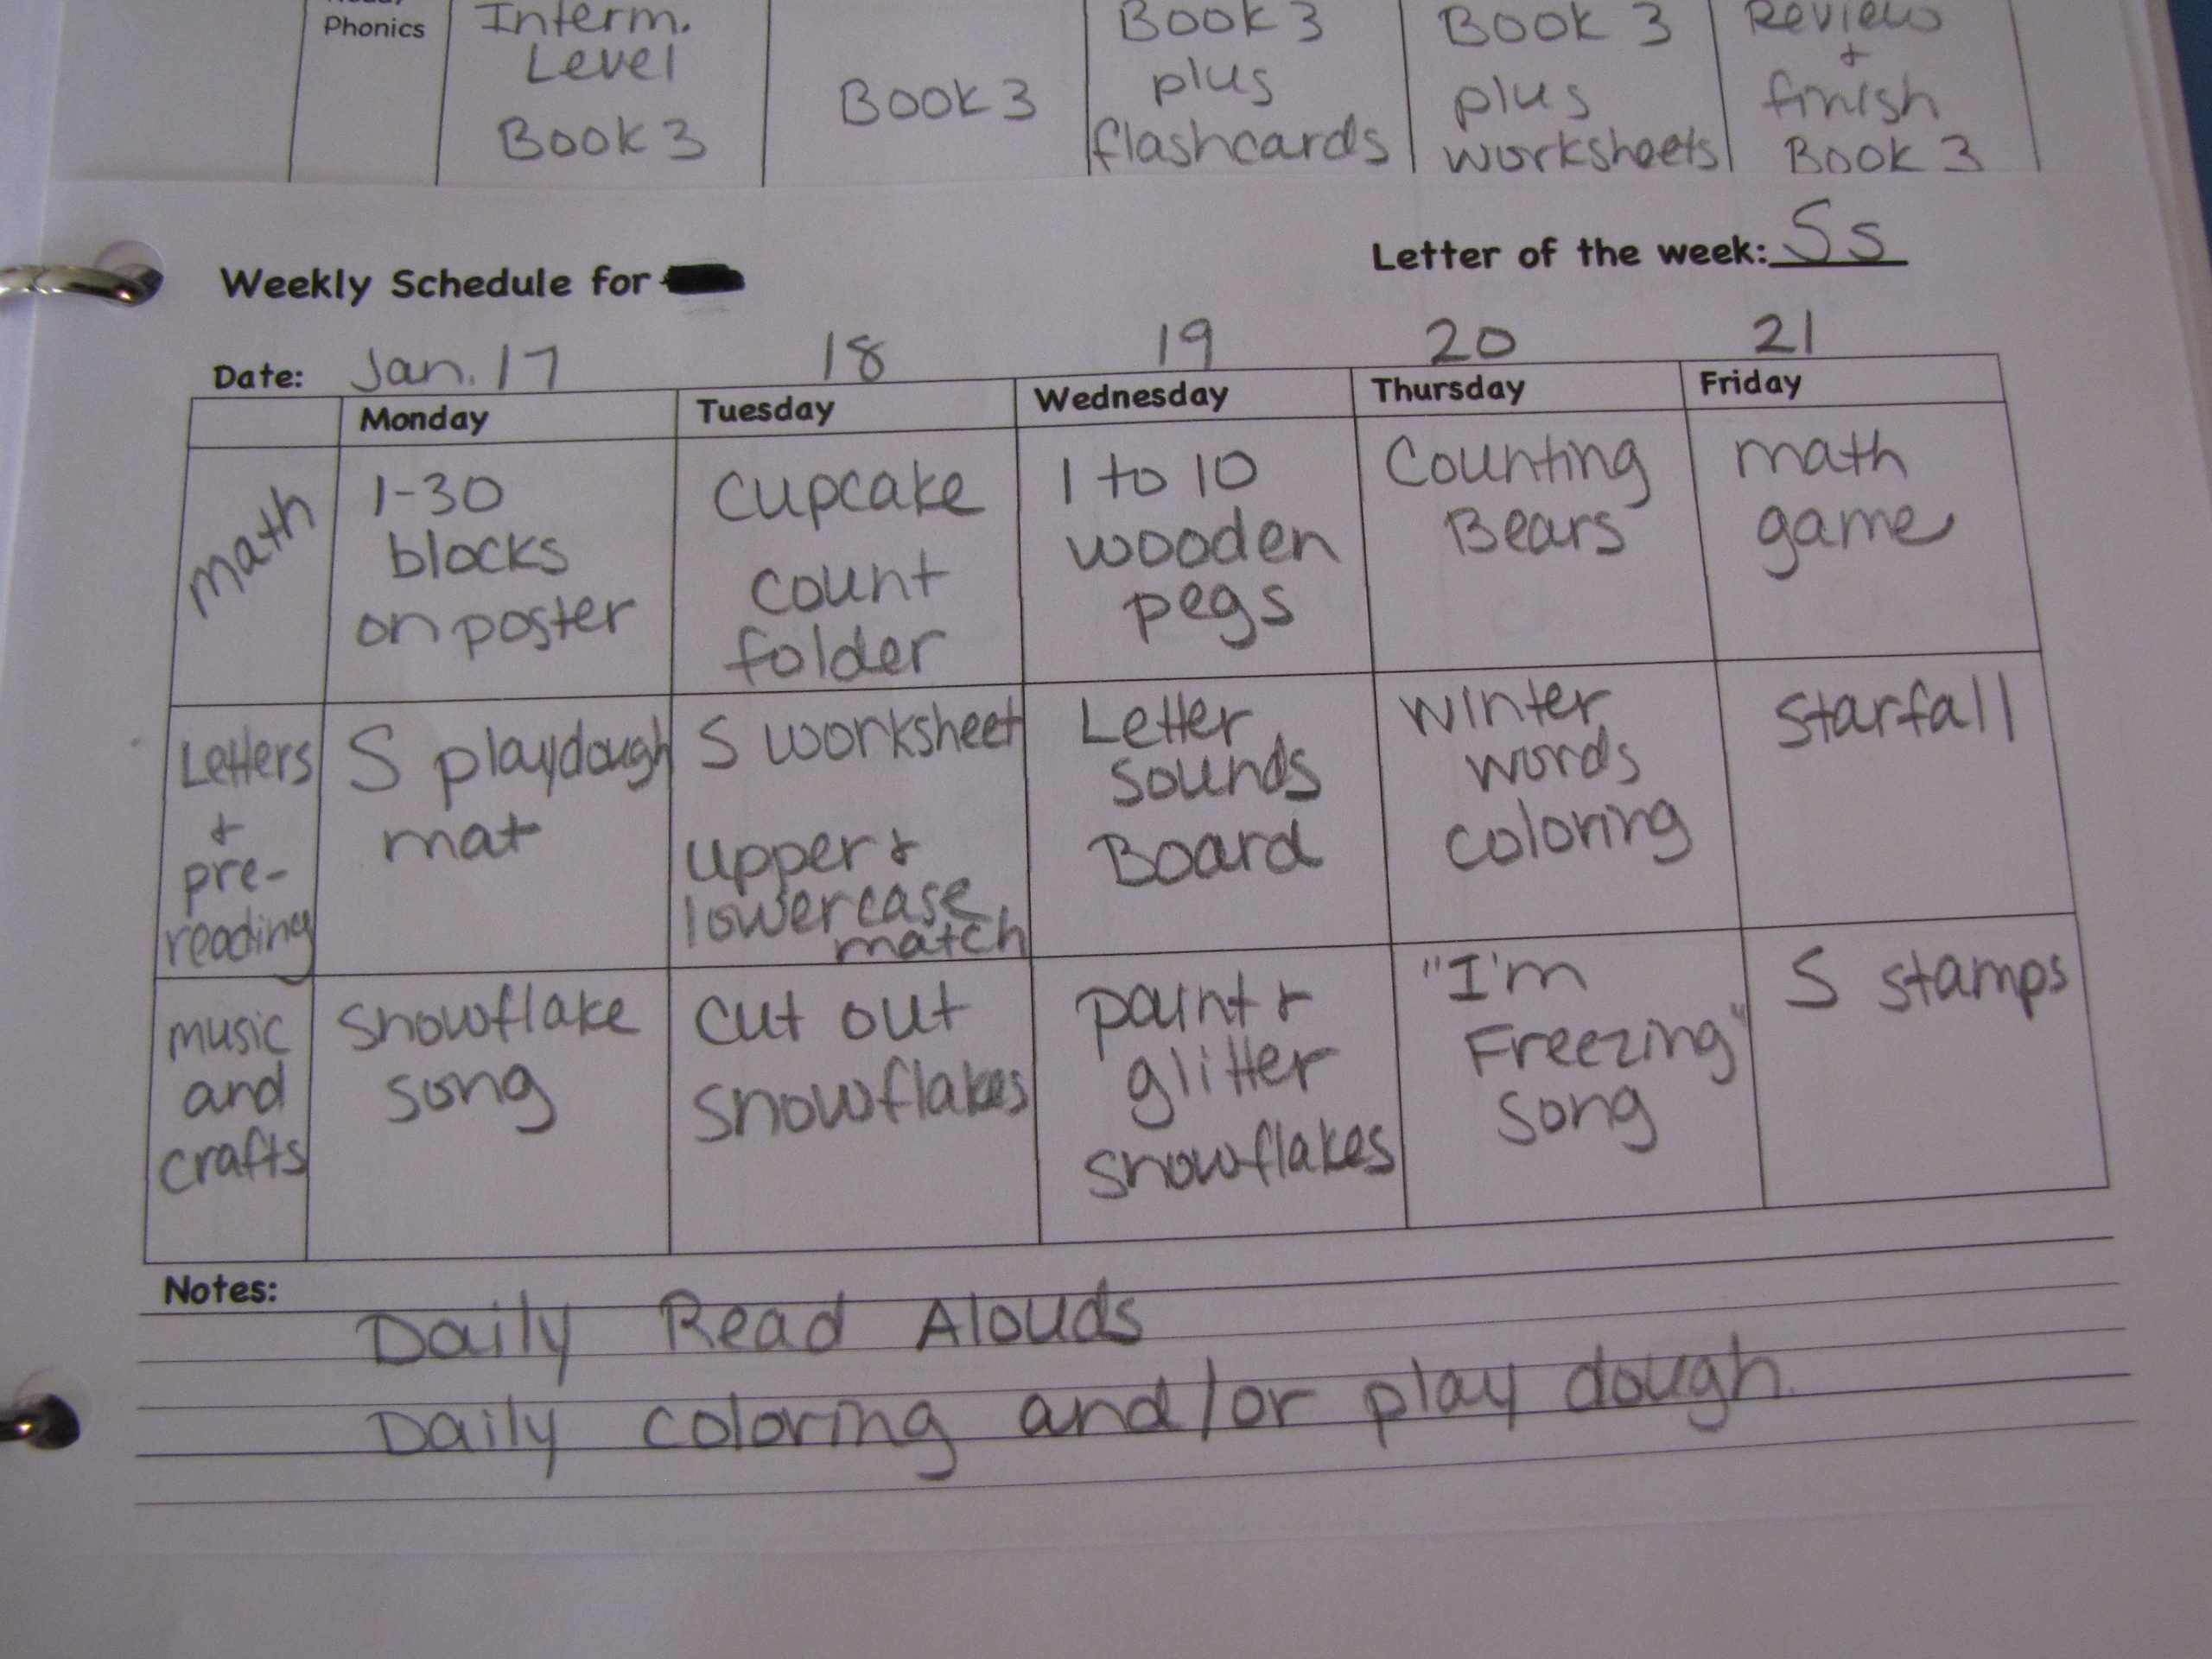 Phonics
Interm.
Level
Book 3
Book 3
Book 3
plus
flashcards
Book 3
plus
worksheets
Review
+
finish
Book 3
Weekly Schedule for
Letter of the week: Ss
Date: Jan. 17 18 19 20 21
Monday Tuesday Wednesday Thursday Friday
math
1-30
blocks
on poster
cupcake
count
folder
1 to 10
wooden
pegs
Counting
Bears
math
game
Letters
+
pre-
reading
S playdough
mat
S worksheet
upper +
lowercase
match
Letter
Sounds
Board
winter
words
coloring
Starfall
music
and
crafts
Snowflake
song
cut out
snowflakes
paint +
glitter
snowflakes
"I'm
Freezing"
song
S stamps
Notes:
Daily Read Alouds
Daily coloring and/or play dough.